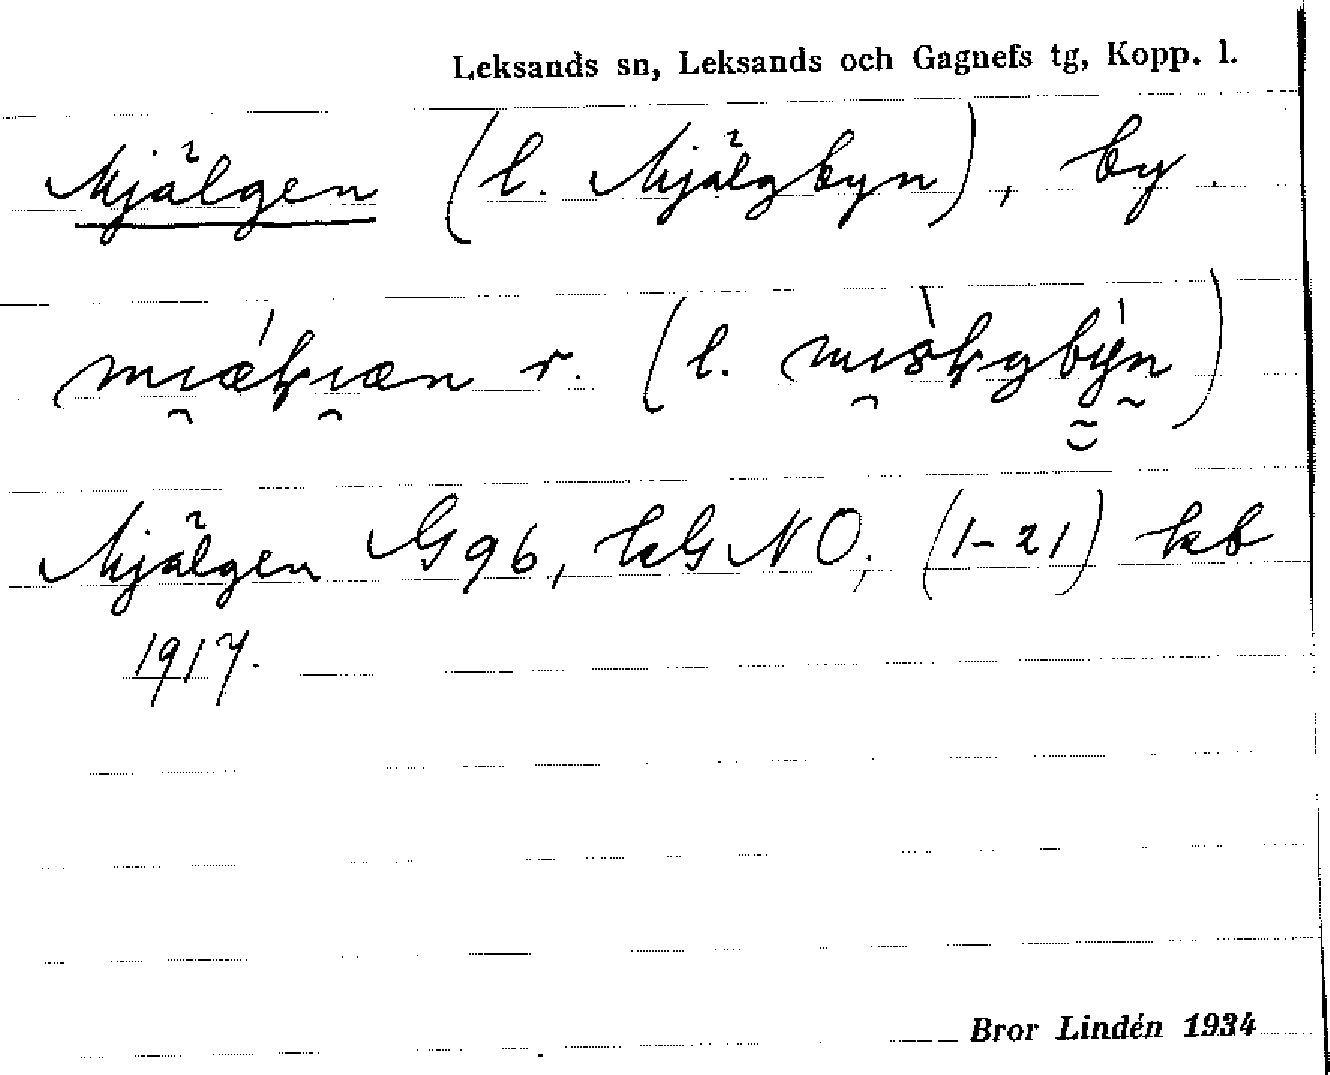 Leksands sn, Leksands och Gagnefs tg, Kopp. l.
Mjälgen (l. Mjälgbyn), by.
r. (l.
Mjälgen G 96, lzG NO, (1-21) kb
1917.
Bror Lindén 1934